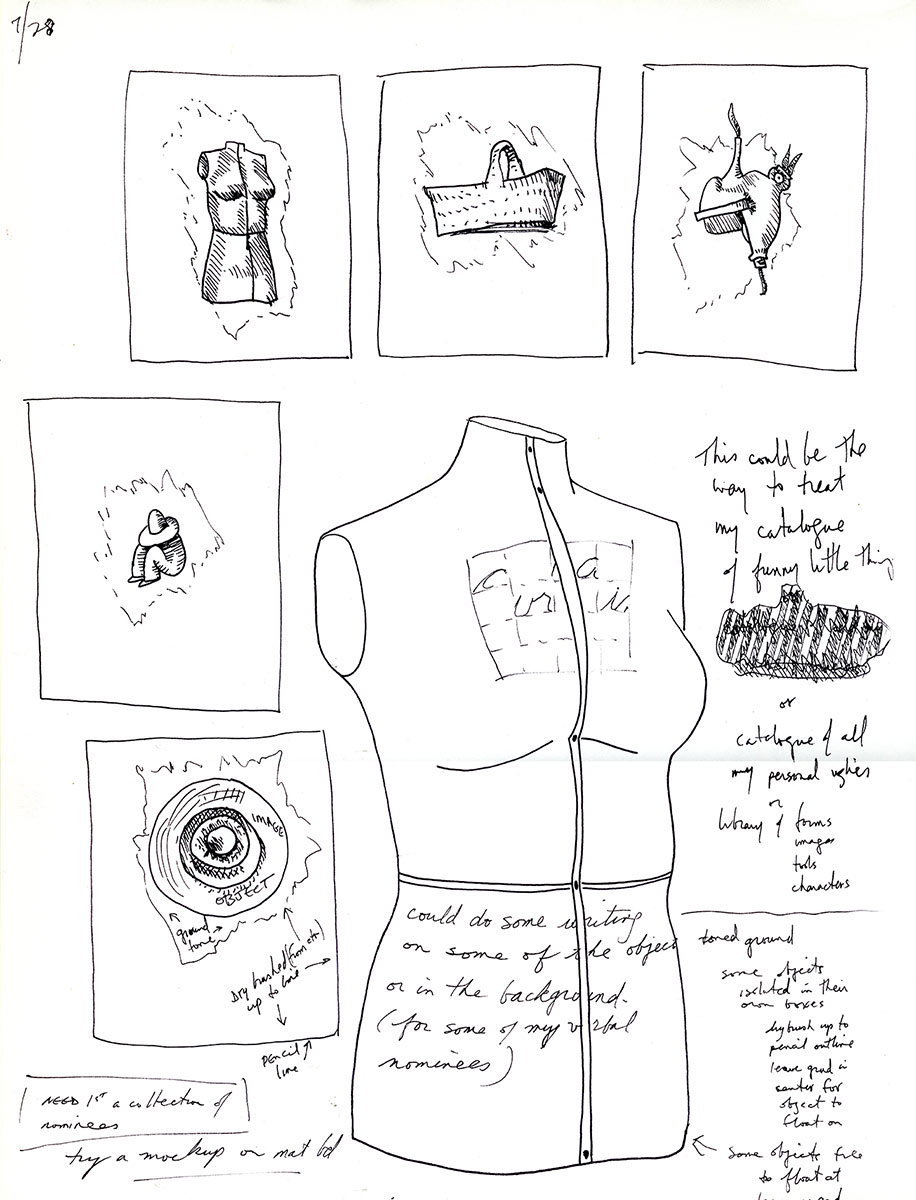 7/28
This could be the
way to treat
my catalogue
of funny little thin
or
catalogue of all
my personal uglies
or
library of forms
images
tools
characters
IMAGE
OBJECT
ground
tone
Dry brushed (from
up to line
PENCIL
line
could do some writing
on some of the object
or in the background.
(for some of my verbal
nominees)
toned ground
some objects
isolated in their
own boxes
drybrush up to
pencil outline
leave grnd in
center for
object to
float on
some objects free
to float at
NEED 1ST a collection of
nominees
try a mockup on mat bd